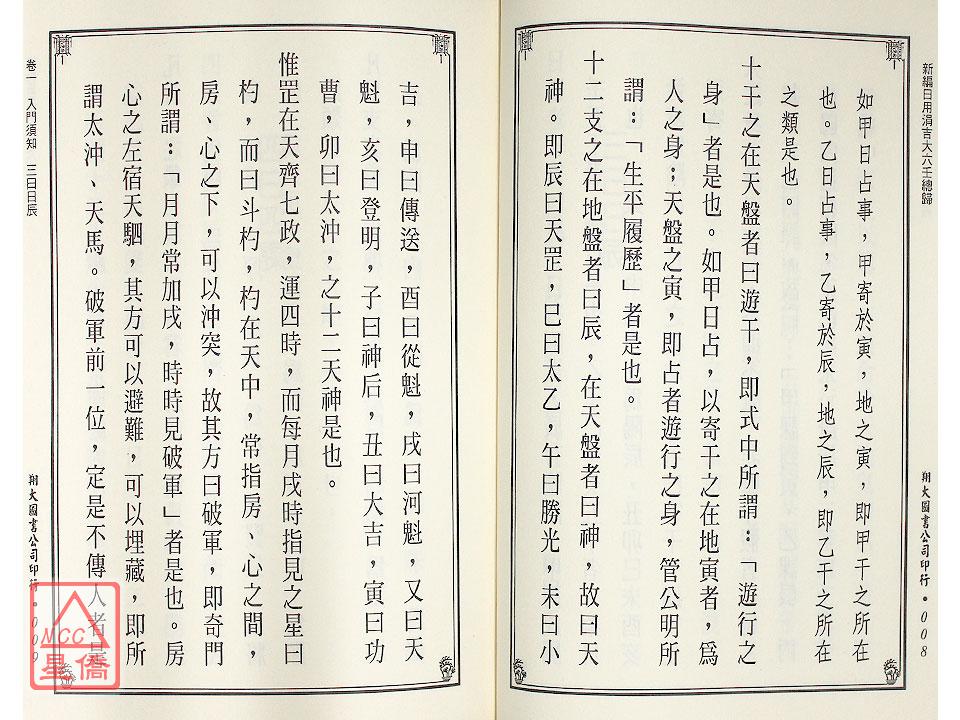 新編日用涓吉大六壬總歸
如甲日占事，甲寄於寅，地之寅，即甲干之所在
也。乙日占事，乙寄於辰，地之辰，即乙干之所在
之類是也。
十干之在天盤者曰遊干，即式中所謂：「遊行之
身」者是也。如甲日占，以寄干之在地寅者，為
人之身；天盤之寅，即占者遊行之身，管公明所
謂：「生平履歷」者是也。
十二支之在地盤者曰辰，在天盤者曰神，故曰天
神。即辰曰天罡，巳曰太乙，午曰勝光，未曰小
翔大圖書公司印行•008
吉，申曰傳送，酉曰從魁，戌曰河魁，又曰天
魁，亥曰登明，子曰神后，丑曰大吉，寅曰功
曹，卯曰太沖，之十二天神是也。
惟罡在天齊七政，運四時，而每月戌時指見之星曰
杓，而曰斗杓，杓在天中，常指房、心之間，
房、心之下，可以沖突，故其方曰破軍，即奇門
所謂：「月月常加戌，時時見破軍」者是也。房
心之左宿天駟，其方可以避難，可以埋藏，即所
謂太沖、天馬。破軍前一位，定是不傳人者是
卷一 入門須知 三曰日辰
翔大圖書公司印行•009
NCC
星僑